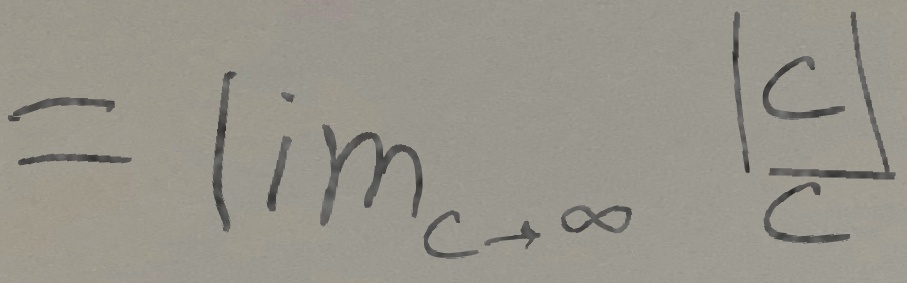 = lim_{c→∞} \frac{|c|}{c}